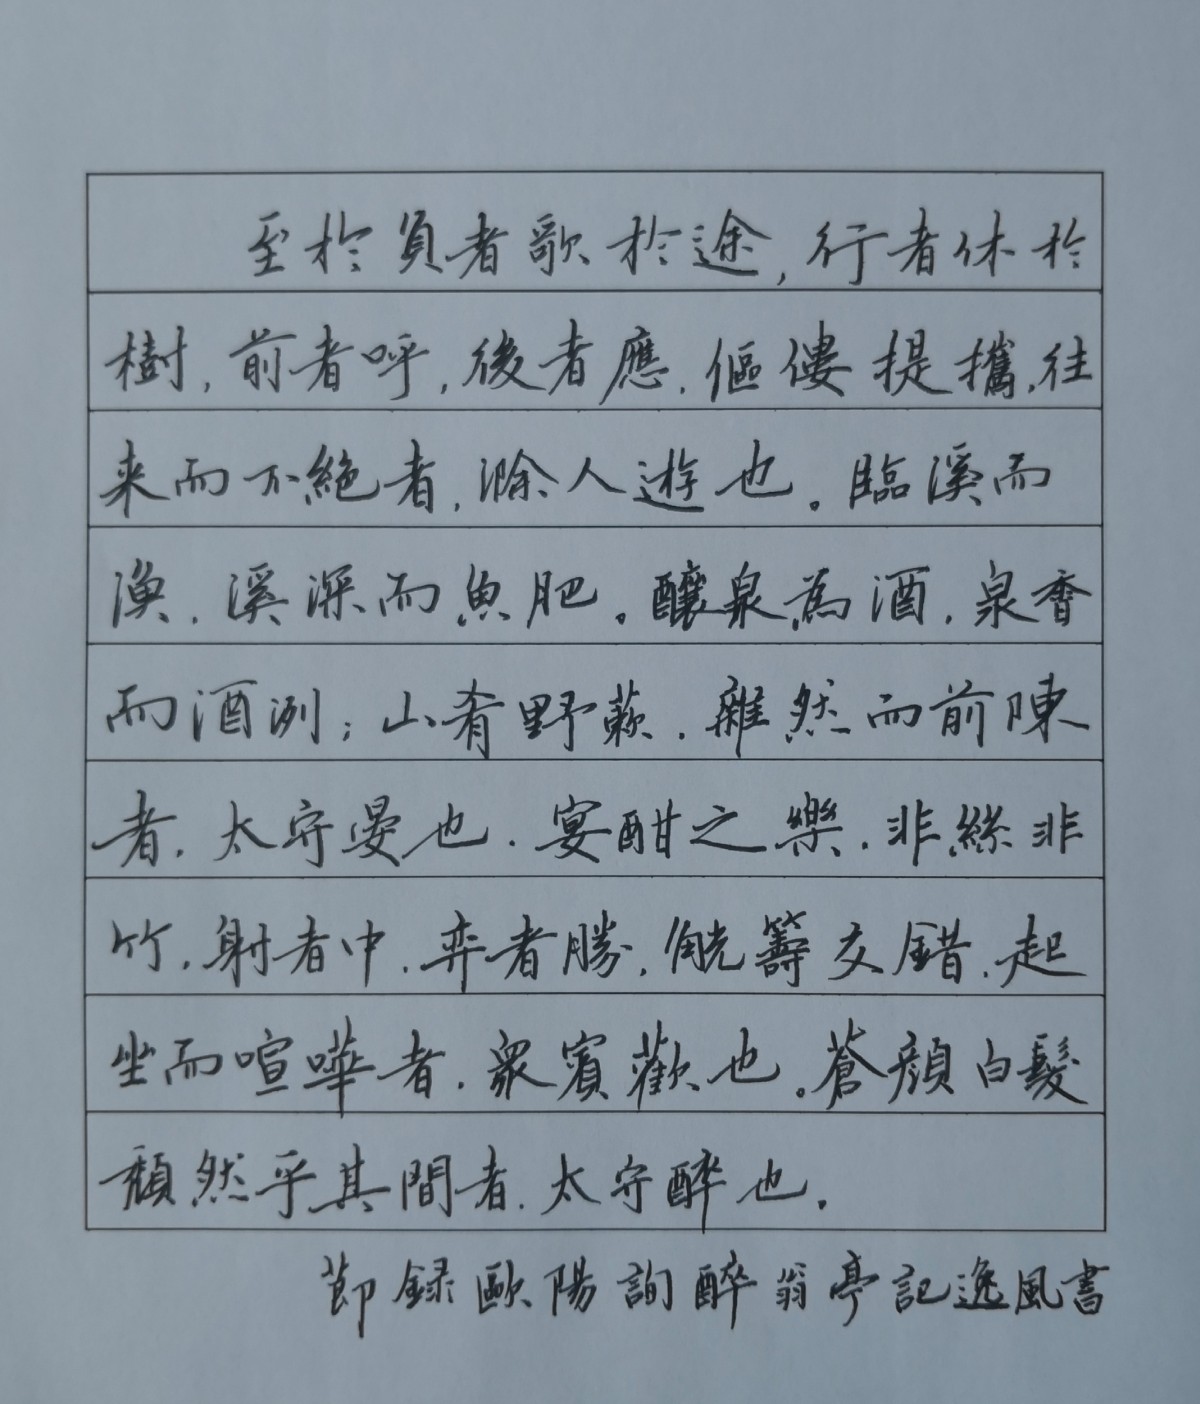 至於負者歌於途,行者休於
樹,前者呼,後者應,傴僂提攜,往
来而不絕者,滁人遊也。臨溪而
漁,溪深而魚肥。釀泉為酒,泉香
而酒洌;山肴野蔌,雜然而前陳
者,太守晏也.宴酣之樂,非絲非
竹,射者中,弈者勝,觥籌交錯,起
坐而喧嘩者,眾賓歡也。蒼顏白髮
頹然乎其間者,太守醉也.
節録歐陽詢醉翁亭記逸風書